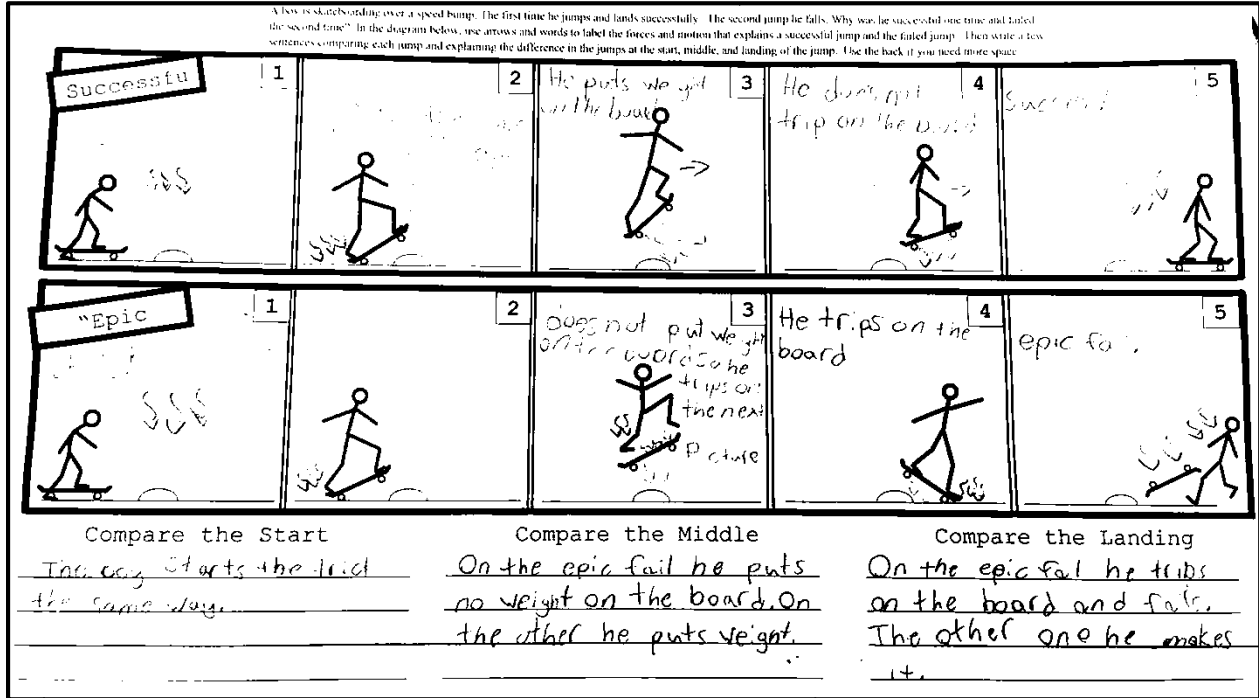 A boy is skateboarding over a speed bump. The first time he jumps and lands successfully. The second jump he falls. Why was he successful one time and failed
the second time? In the diagram below, use arrows and words to label the forces and motion that explains a successful jump and the failed jump. Then write a few
sentences comparing each jump and explaining the difference in the jumps at the start, middle, and landing of the jump. Use the back if you need more space
Successfu
1
2
the
3
He puts weight
on the board
4
He does not
trip on the board
5
"Epic
1
2
3
Does not put weight
on the board so he
trips on
the next
Picture
4
He trips on the
board
5
epic fa
Compare the Start
The boy starts the trick
the same way.
Compare the Middle
On the epic fail he puts
no weight on the board. On
the other he puts weight.
Compare the Landing
On the epic fal he trips
on the board and fails.
The other one he makes
it.